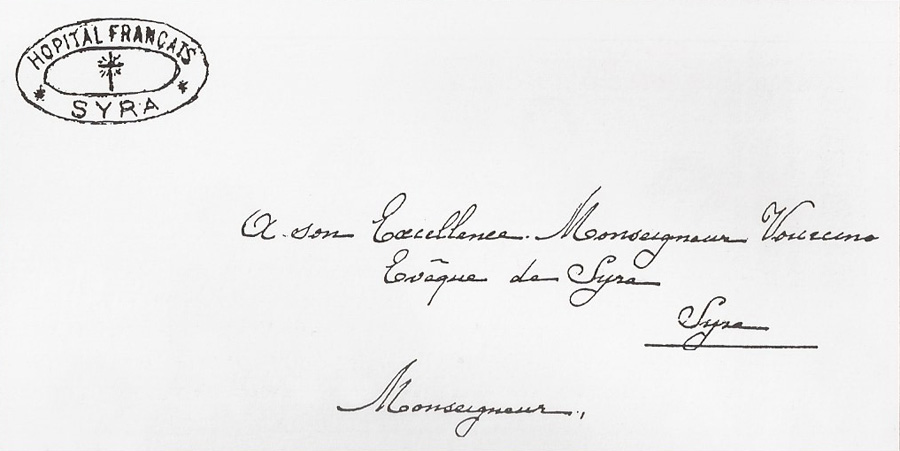 HOPITAL FRANÇAIS
SYRA
A son Excellence Monseigneur Vouccino
Evêque de Syra
Syra
Monseigneur,